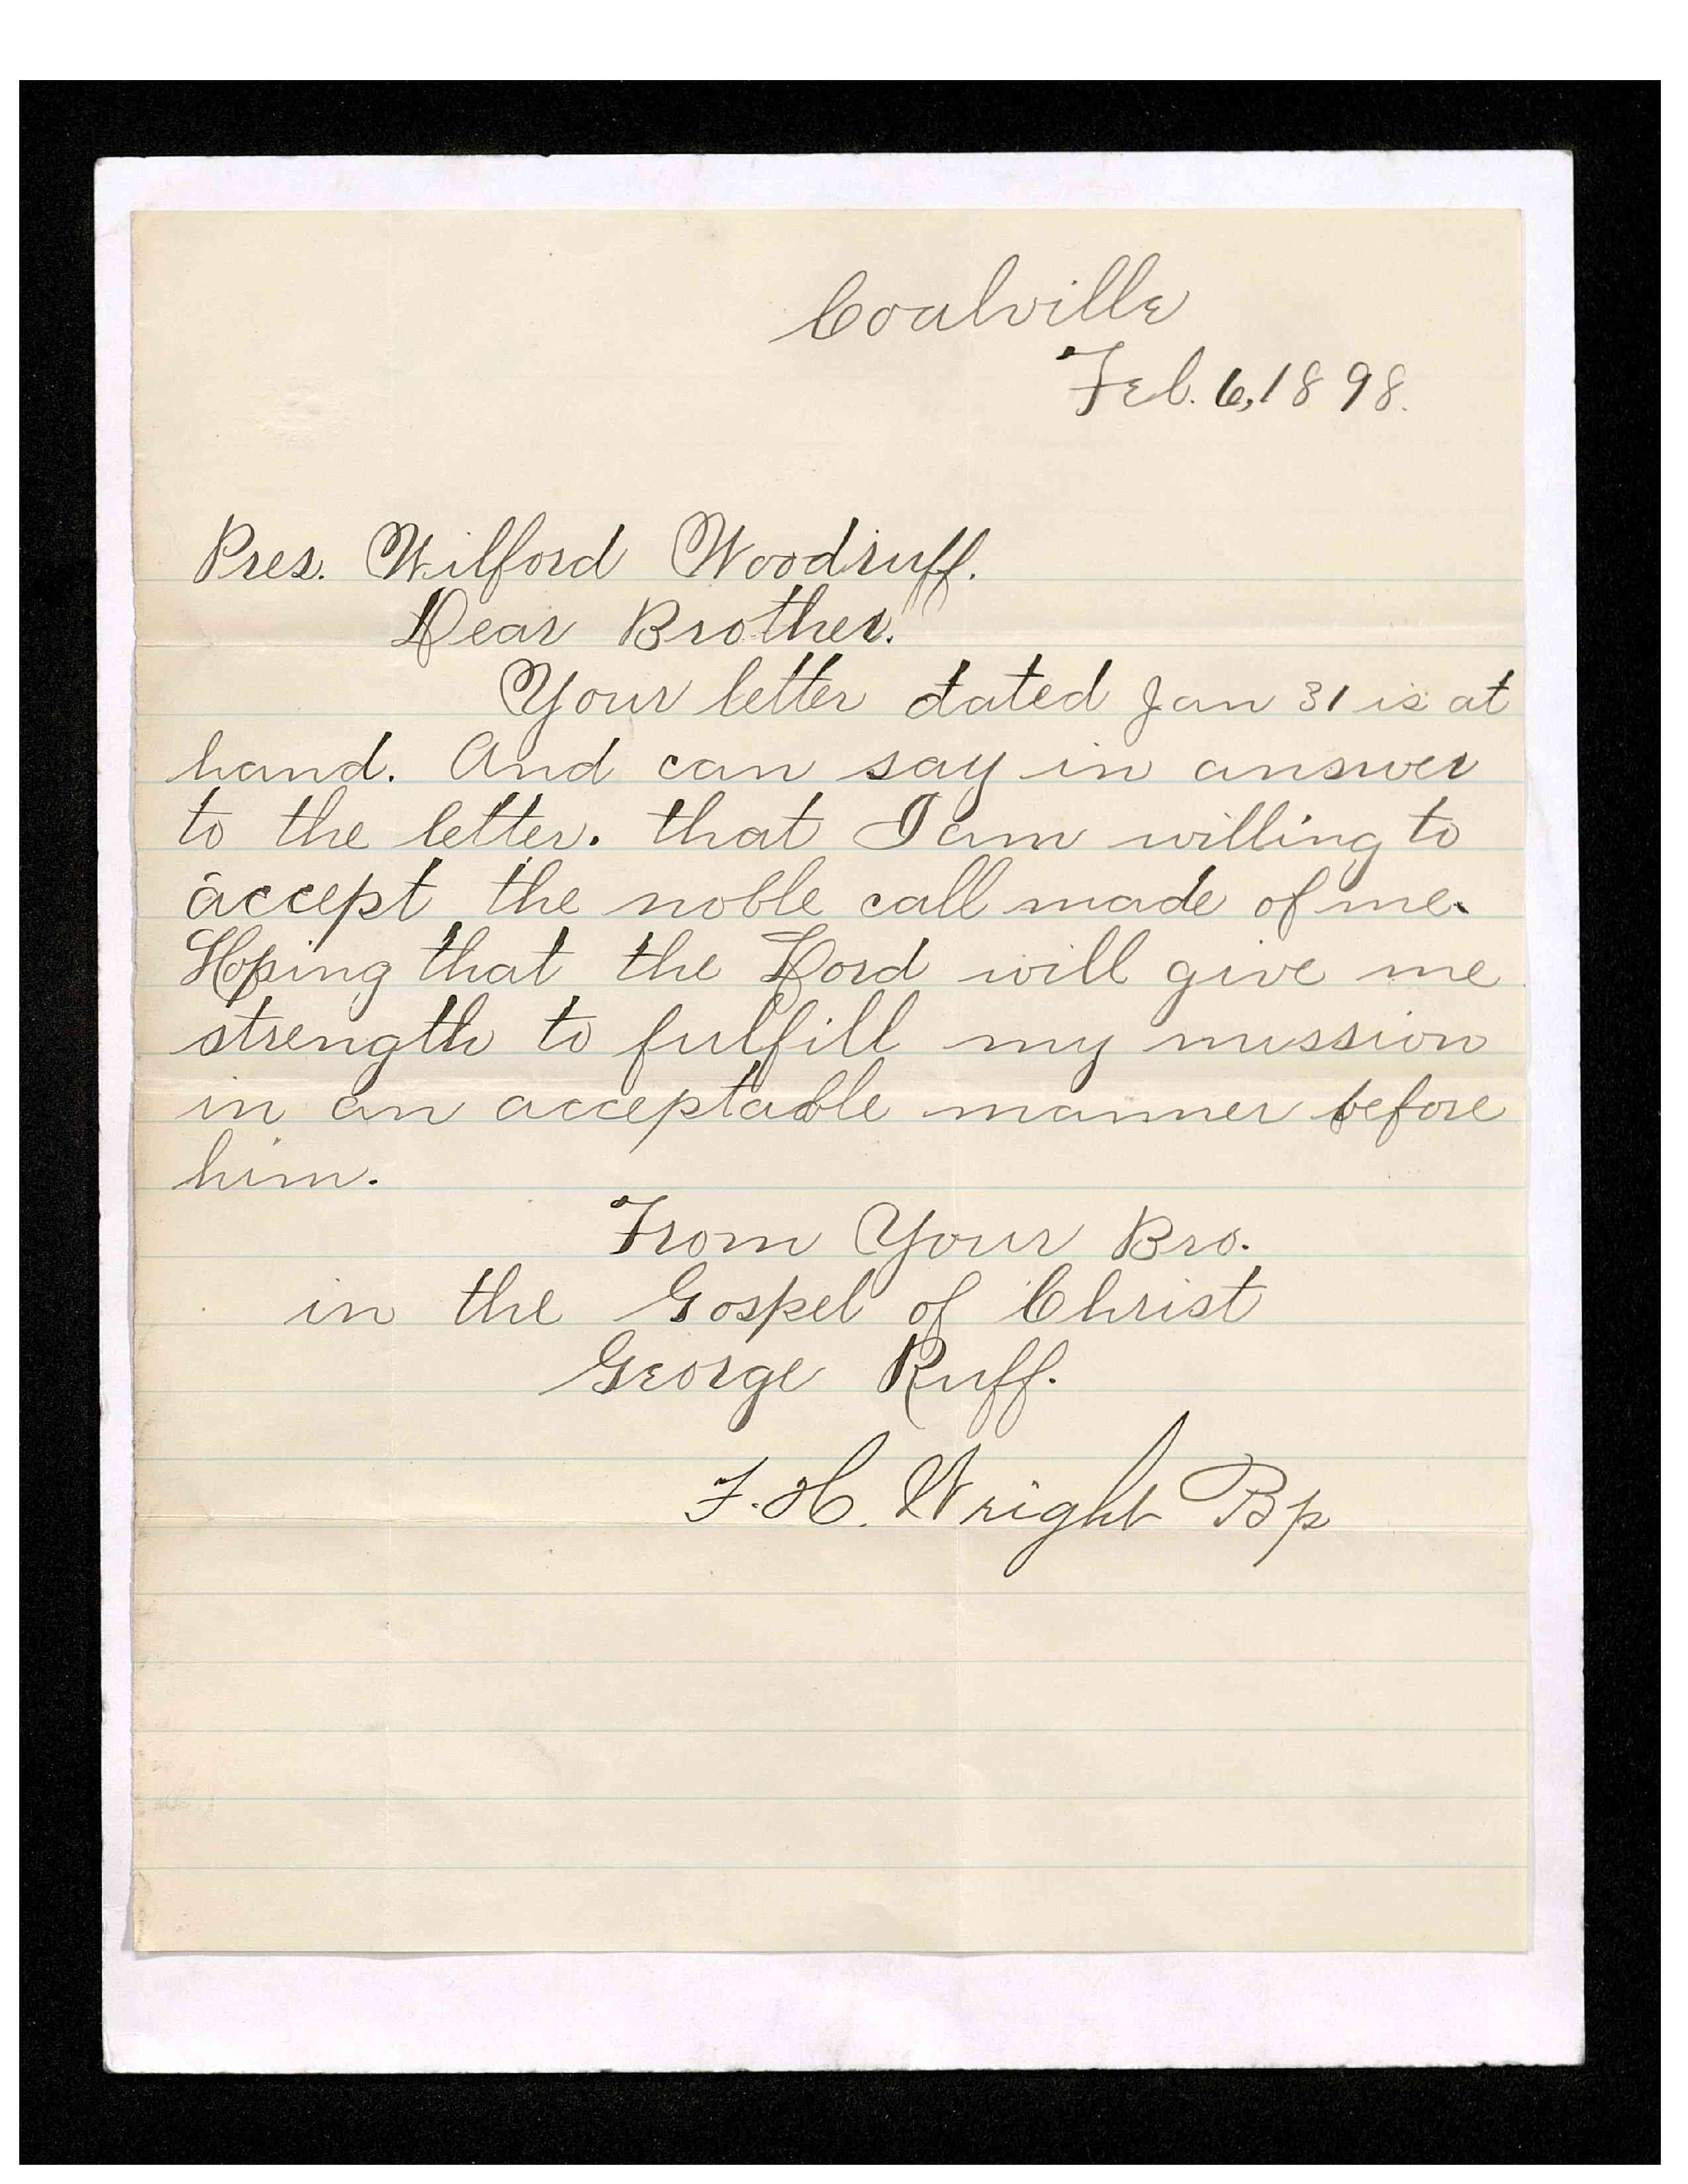 Coalville
Feb. 6, 1898.
Pres. Wilford Woodruff.
Dear Brother.
Your letter dated Jan 31 is at
hand. And can say in answer
to the letter. that I am willing to
accept the noble call made of me.
Hoping that the Lord will give me
strength to fulfill my mission
in an acceptable manner before
him.
From Your Bro.
in the Gospel of Christ
George Ruff.
F. H. Wright Bp